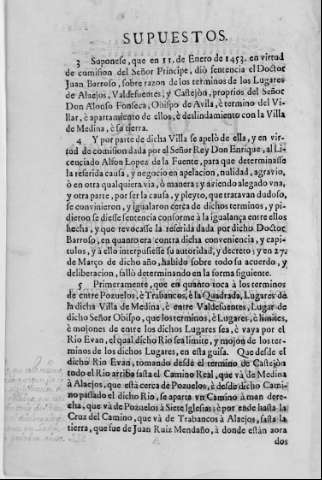 SUPUESTOS.
3 Suponese, que en 11. de Enero de 1453. en virtud
de comision del Señor Principe, diò sentencia el Doctor
Juan Barroso, sobre razon de los terminos de los Lugares
de Alaejos, Valdefuentes, y Castejòn, proprios del Señor
Don Alonso Fonseca, Obispo de Avila, è termino del Vi-
llar, è apartamiento de ellos, è deslindamiento con la Villa
de Medina, è su tierra.
4 Y por parte de dicha Villa se apelò de ella, y en vir-
tud de comision dada por el Señor Rey Don Enrique, al Li-
cenciado Alfon Lopez de la Fuente, para que determinasse
la referida causa, y negocio en apelacion, nulidad, agravio,
ò en otra qualquiera via, ò manera; y aviendo alegado vna,
y otra parte, por ser la causa, y pleyto, que tratavan dudoso,
se convinieron, y igualaron cerca de dichos terminos, y pi-
dieron se diesse sentencia conforme à la igualança entre ellos
hecha, y que revocasse la referida dada por dicho Doctor
Barroso, en quanto era contra dicha conveniencia, y capi-
tulos, y à ello interpusiesse su autoridad, y decreto; y en 27.
de Março de dicho año, habido sobre todo su acuerdo, y
deliberacion, fallò determinando en la forma siguiente.
5 Primeramente, que en quanto toca à los terminos
de entre Pozuelos, è Trabancos, è la Quadrada, Lugares de
la dicha Villa de Medina, è entre Valdefuentes, Lugar de
dicho Señor Obispo, que los terminos, è Lugares, è limites,
è mojones de entre los dichos Lugares sea, è vaya por el
Rio Evan, el qual dicho Rio sea limite, y mojon de los ter-
minos de los dichos Lugares, en esta guisa. Que desde el
dicho Rio Evan, tomando desde el termino de Castejòn
todo el Rio arriba fasta el Camino Real, que và de Medina
à Alaejos, que està cerca de Pozuelos, è desde dicho Cami-
no passado el dicho Rio, se aparta vn Camino à man dere-
cha, que và de Pozuelos à Siete Iglesias; è por ende hasta la
Cruz del Camino, que và de Trabancos à Alaejos, fasta la
tierra, que fue de Juan Ruiz Mendaño, à donde estàn aora
dos